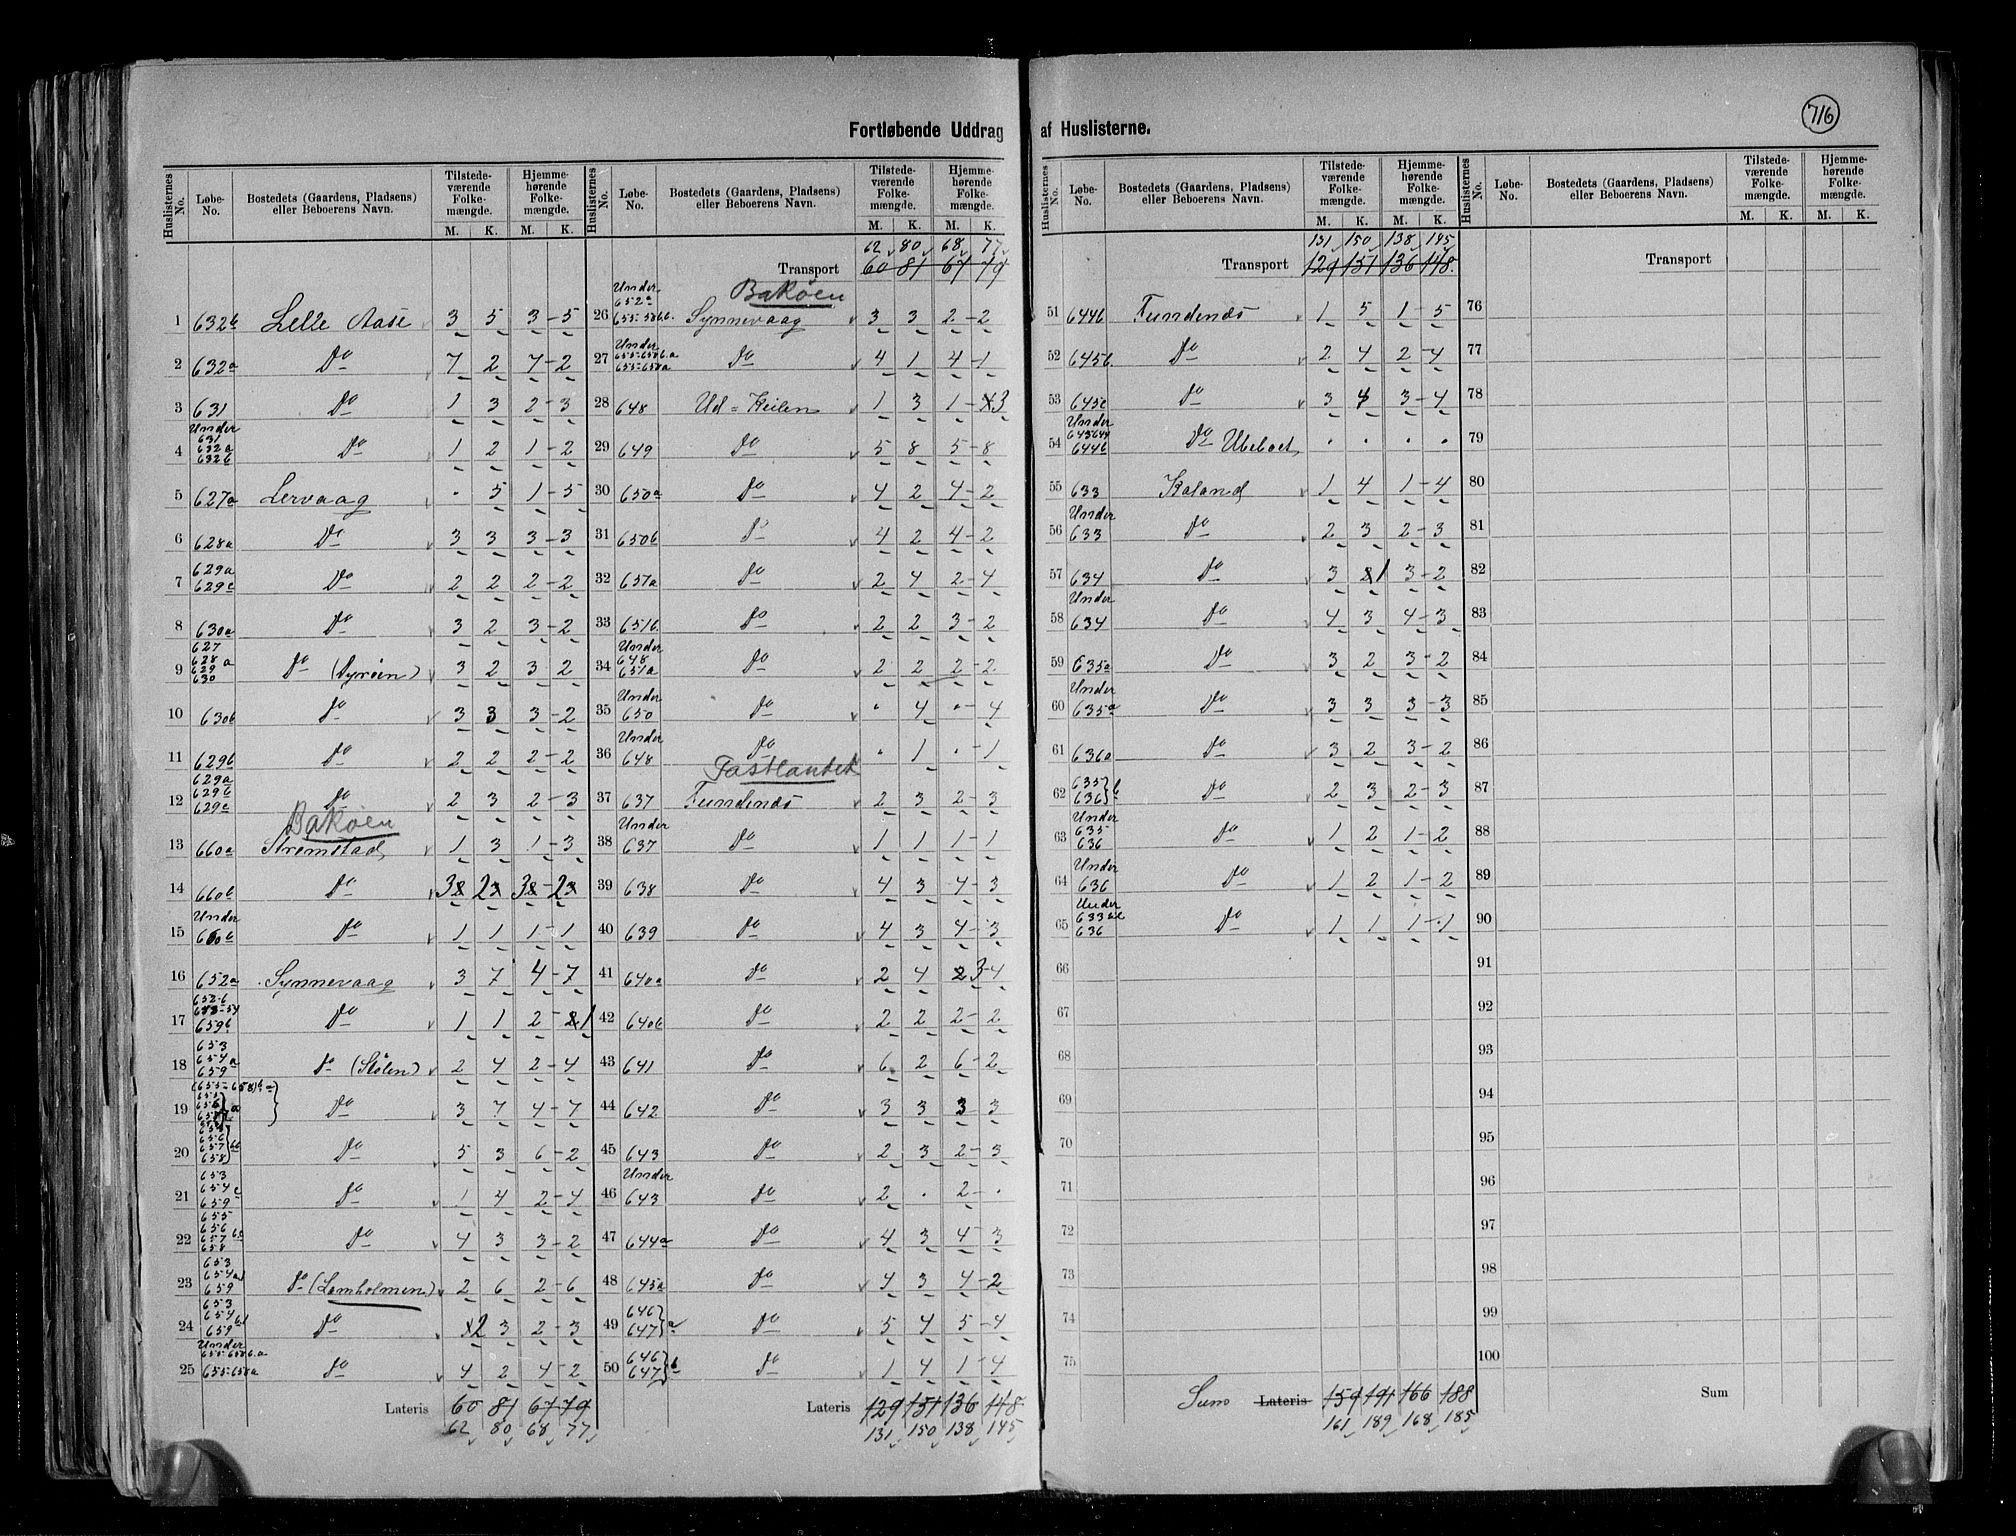 716
Fortløbende Uddrag af Huslisterne.
Huslisternes No. Løbe-No. Bostedets (Gaardens, Pladsens) eller Beboerens Navn. Tilstedeværende Folkemængde. M. K. Hjemmehørende Folkemængde. M. K.
1 632b Lille Aase 3 5 3-5
2 632a Do 7 2 7-2
3 631 Do 1 3 2-3
4 Under 631 632a 632b Do 1 2 1-2
5 627a Lervaag . 5 1-5
6 628a Do 3 3 3-3
7 629a 629c Do 2 2 2-2
8 630a Do 3 2 3-2
9 627 628 a 629 630 Do (Dyröen) 3 2 3 2
10 630b Do 3 3 3-2
11 629b Do 2 2 2-2
12 629a 629b 629c Do 2 3 2-3
Bakøen
13 660a Strømstad 1 3 1-3
14 660b Do 3 2 3-2
15 Under 660b Do 1 1 1-1
16 652a Synnevaag 3 7 4-7
17 652b 659b Do 1 1 2-1
18 653 654a 659a Do (Stølen) 2 4 2-4
19 Do 3 7 4-7
20 656 657 658 Do 5 3 6-2
21 653 654c 659 Do 1 4 2-4
22 655 656 657 658 Do 4 3 3-2
23 653 654 659 Do (Lamholmen) 2 6 2-6
24 653 654 659 Do 2 3 2-3
25 Under 655-658b.a 655-658a Do 4 2 4-2
Lateris 60 81 67 79
62 80 68 77
62 80 68 77
Transport 60 81 67 79
Bakøen
26 Under 652a 655-58b. Synnevaag 3 3 2-2
27 Under 655-658b.a 655-658a Do 4 1 4-1
28 648 Ud=Keilen 1 3 1-3
29 649 Do 5 8 5-8
30 650a Do 4 2 4-2
31 650b Do 4 2 4-2
32 651a Do 2 4 2-4
33 651b Do 2 2 3-2
34 Under 648 651a Do 2 2 2-2
35 Under 650 Do . 4 .-4
36 Under 648 Do . 1 .-1
Fastlandet
37 637 Fundenæs 2 3 2-3
38 Under 637 Do 1 1 1-1
39 638 Do 4 3 4-3
40 639 Do 4 3 4-3
41 640a Do 2 4 3-4
42 640b Do 2 2 2-2
43 641 Do 6 2 6-2
44 642 Do 3 3 3 3
45 643 Do 2 3 2-3
46 Under 643 Do 2 . 2-.
47 644a Do 4 3 4 3
48 645a Do 4 3 4-2
49 646 647 } a Do 5 4 5-4
50 646 647 } b Do 1 4 1-4
Lateris 129 151 136 148
131 150 138 145
131 150 138 145
Transport 129 151 136 148
51 644b Fundenæs 1 5 1-5
52 645b Do 2 4 2-4
53 645c Do 3 4 3-4
54 Under 643 644 644b Do Ubeboet . . . .
55 633 Kaland 1 4 1-4
56 Under 633 Do 2 3 2-3
57 634 Do 3 1 3-2
58 Under 634 Do 4 3 4-3
59 635a Do 3 2 3-2
60 Under 635a Do 3 3 3-3
61 636a Do 3 2 3-2
62 635 636 } b Do 2 3 2-3
63 Under 635 636 Do 1 2 1-2
64 Under 636 Do 1 2 1-2
65 Under 633 til 636 Do 1 1 1-1
66
67
68
69
70
71
72
73
74
75
Sum Lateris 159 191 166 188
161 189 168 185
Transport
76
77
78
79
80
81
82
83
84
85
86
87
88
89
90
91
92
93
94
95
96
97
98
99
100
Sum